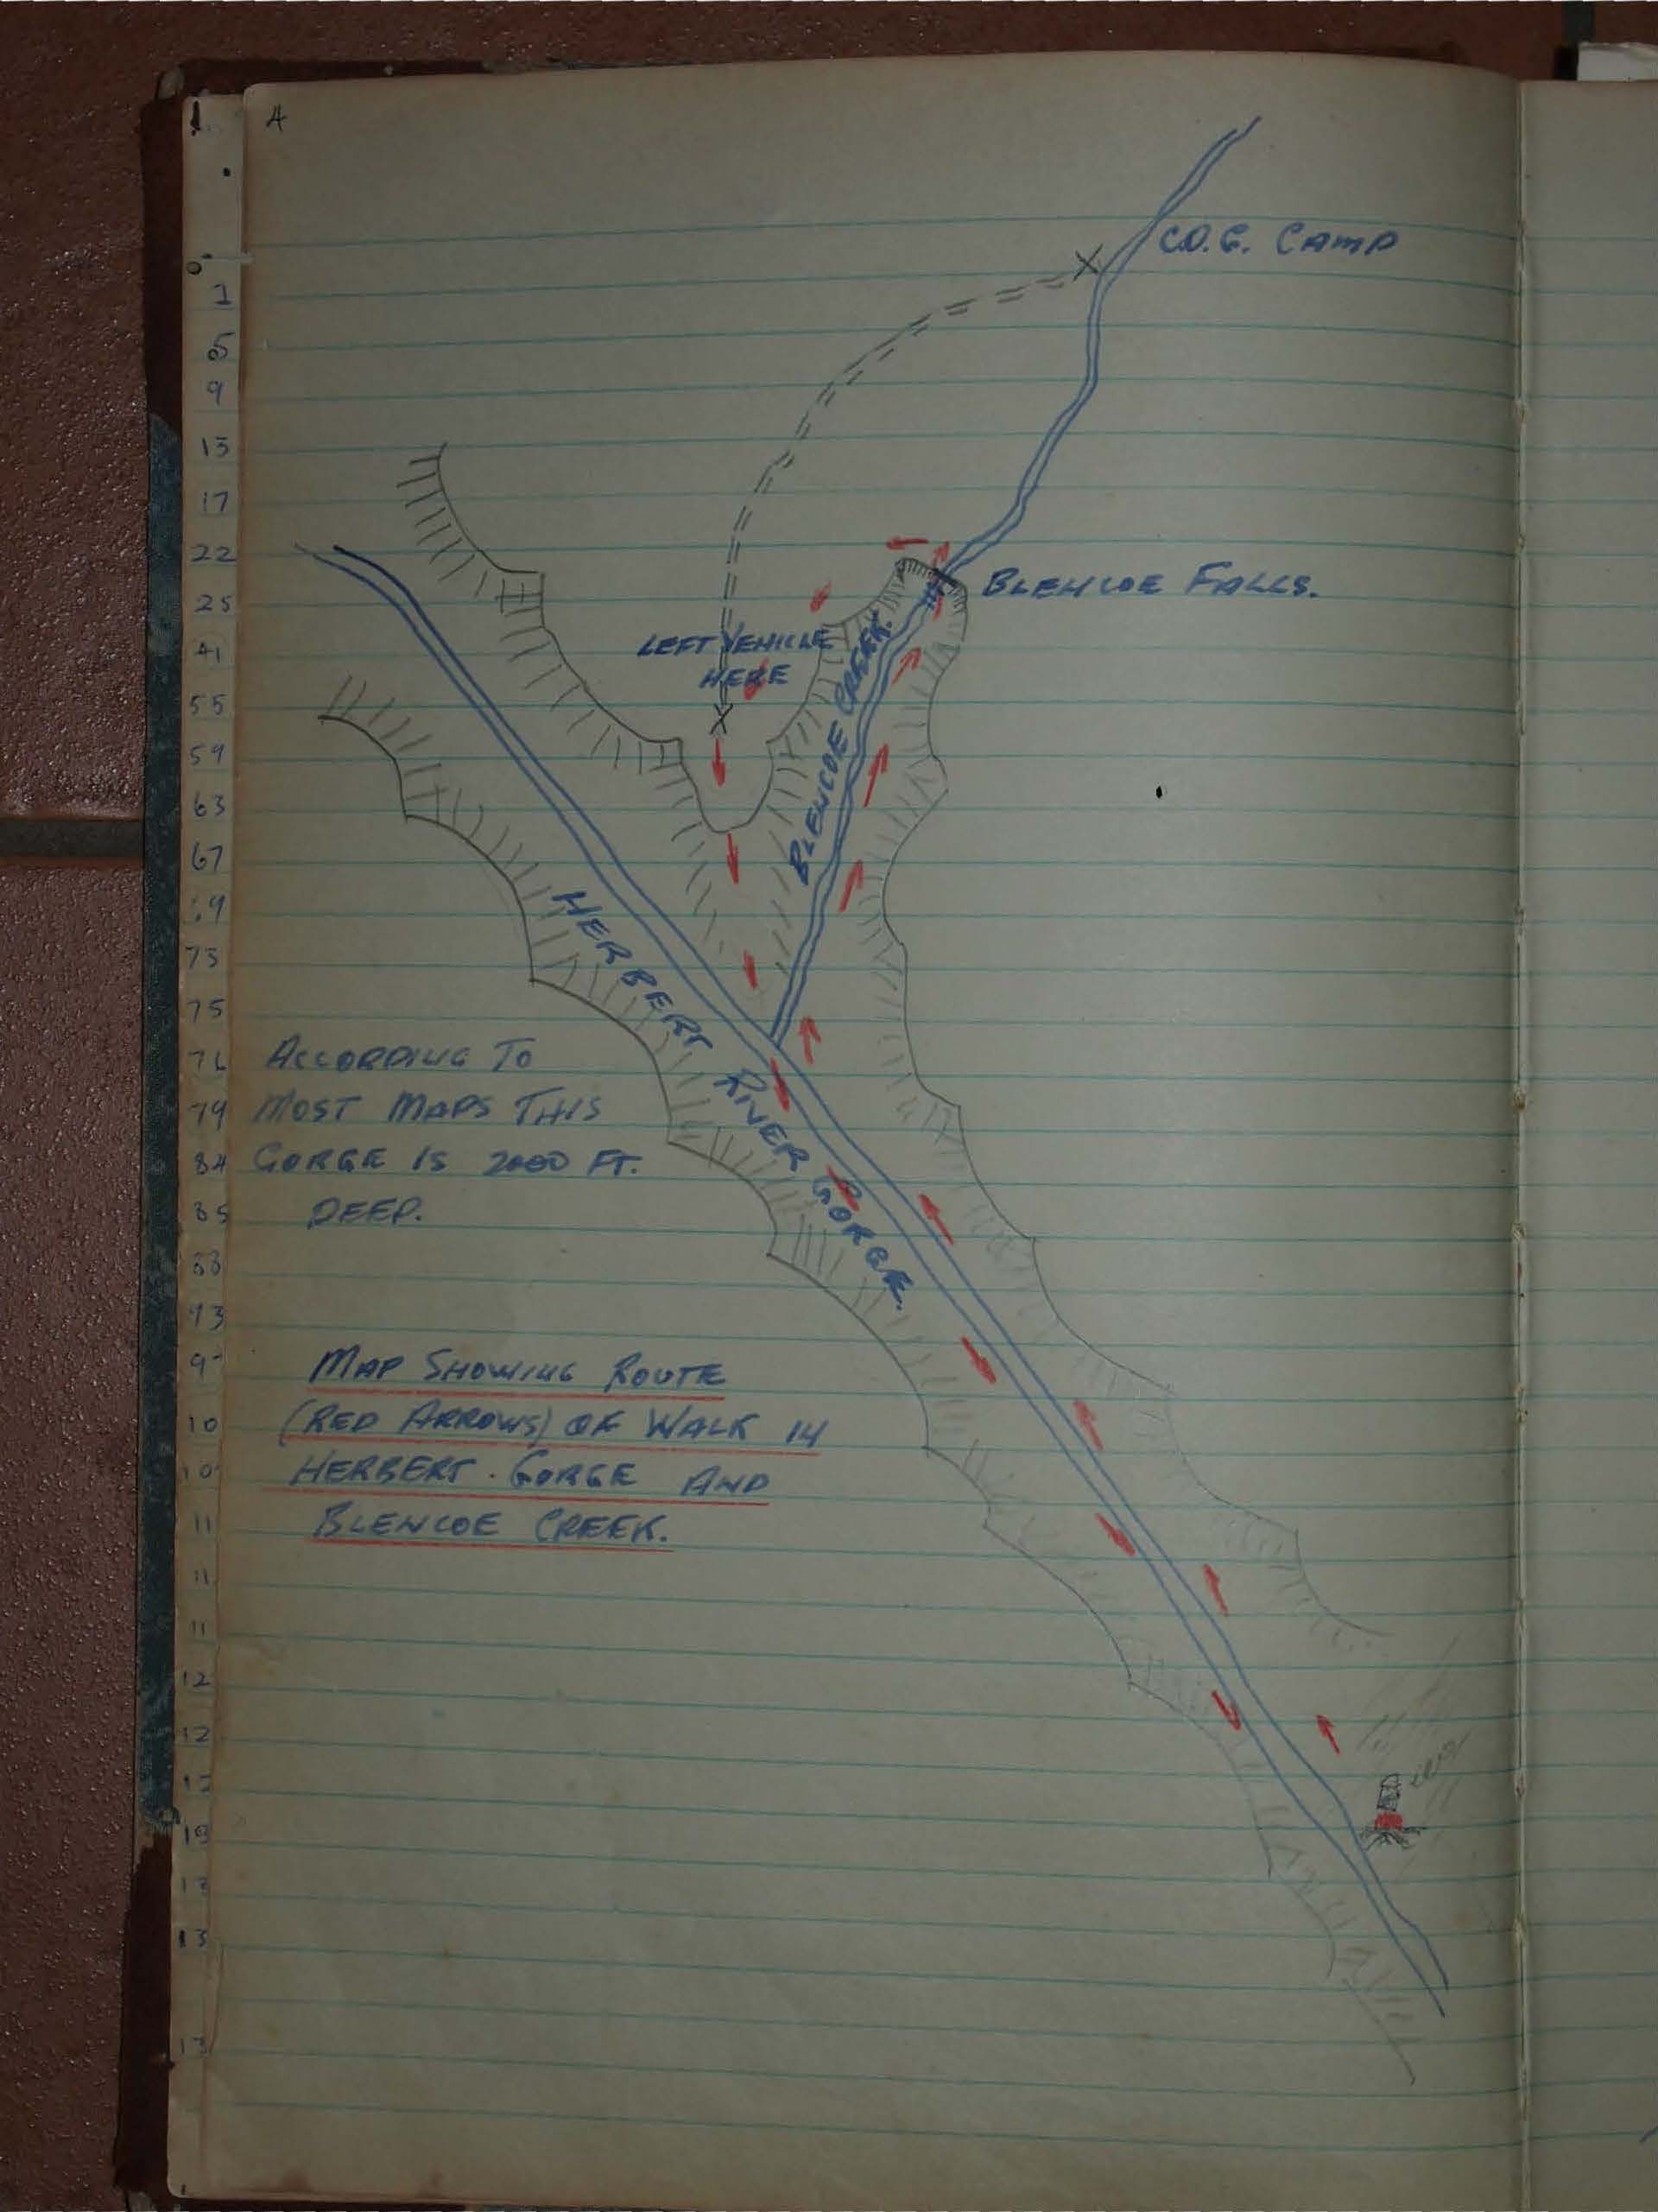 4
C.O.G. CAMP
BLENCOE FALLS.
LEFT VEHICLE
HERE
BLENCOE CREEK.
HERBERT RIVER GORGE.
ACCORDING TO
MOST MAPS THIS
GORGE IS 2000 FT.
DEEP.
MAP SHOWING ROUTE
(RED ARROWS) OF WALK 14
HERBERT. GORGE AND
BLENCOE CREEK.
1
5
9
13
17
22
25
41
55
59
63
67
69
73
75
76
79
84
85
88
93
9
10
10
11
11
11
12
12
13
13
13